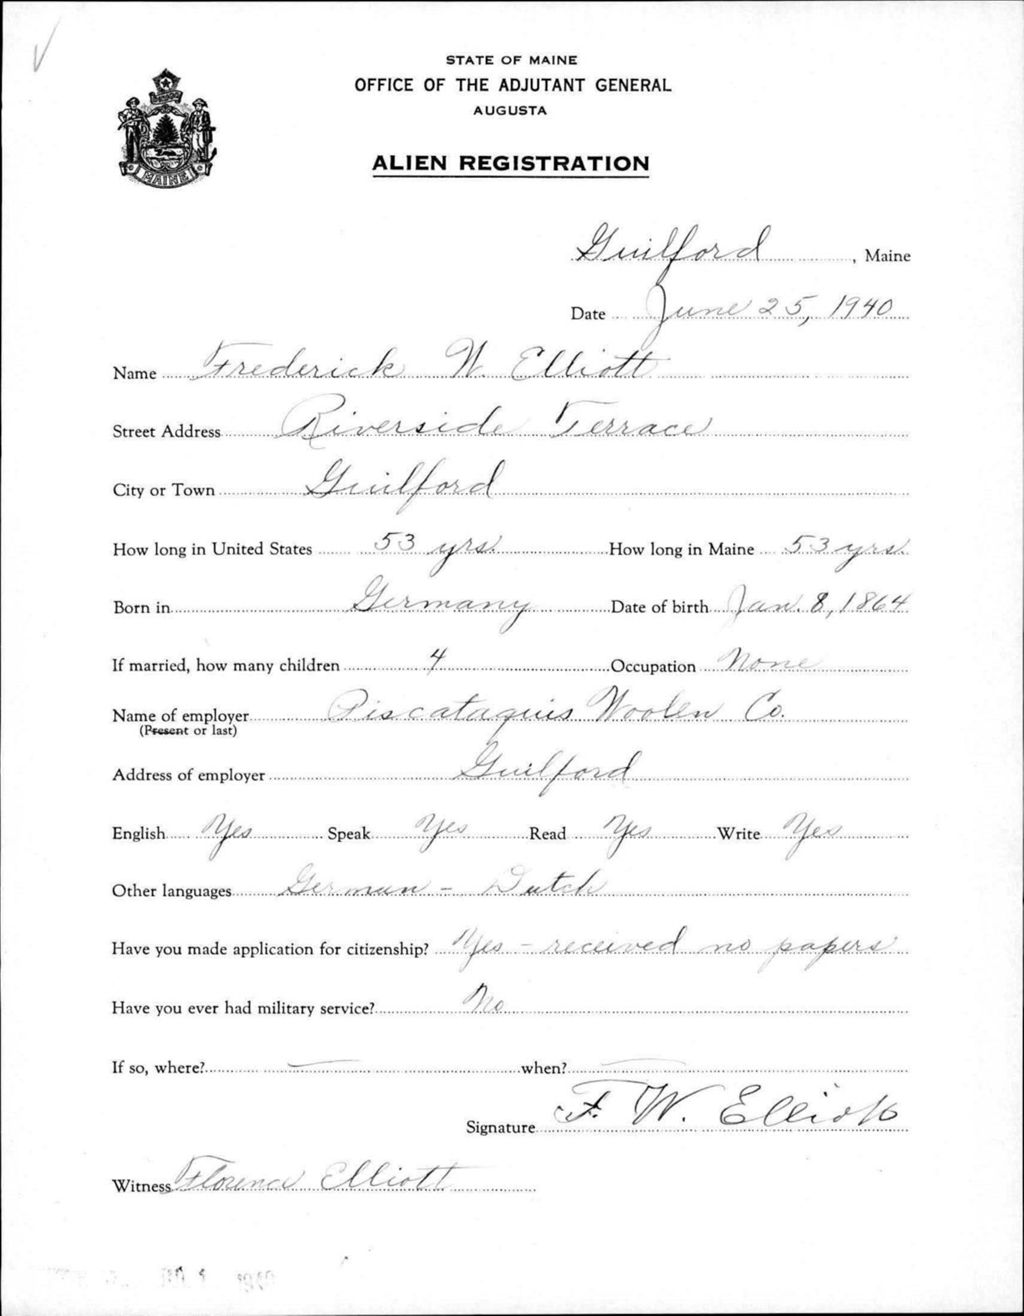 STATE OF MAINE
OFFICE OF THE ADJUTANT GENERAL
AUGUSTA
ALIEN REGISTRATION
MAINE
Guilford, Maine
Date June 25, 1940
Name Frederick W. Elliott
Street Address Riverside Terrace
City or Town Guilford
How long in United States 53 yrs. How long in Maine 53 yrs.
Born in Germany Date of birth Jan. 8, 1864
If married, how many children 4 Occupation None
Name of employer Piscataquis Woolen Co.
(Present or last)
Address of employer Guilford
English Yes Speak Yes Read Yes Write Yes
Other languages German - Dutch
Have you made application for citizenship? Yes - received no papers
Have you ever had military service? No
If so, where? — when? —
Signature F. W. Elliott
Witness Florence Elliott